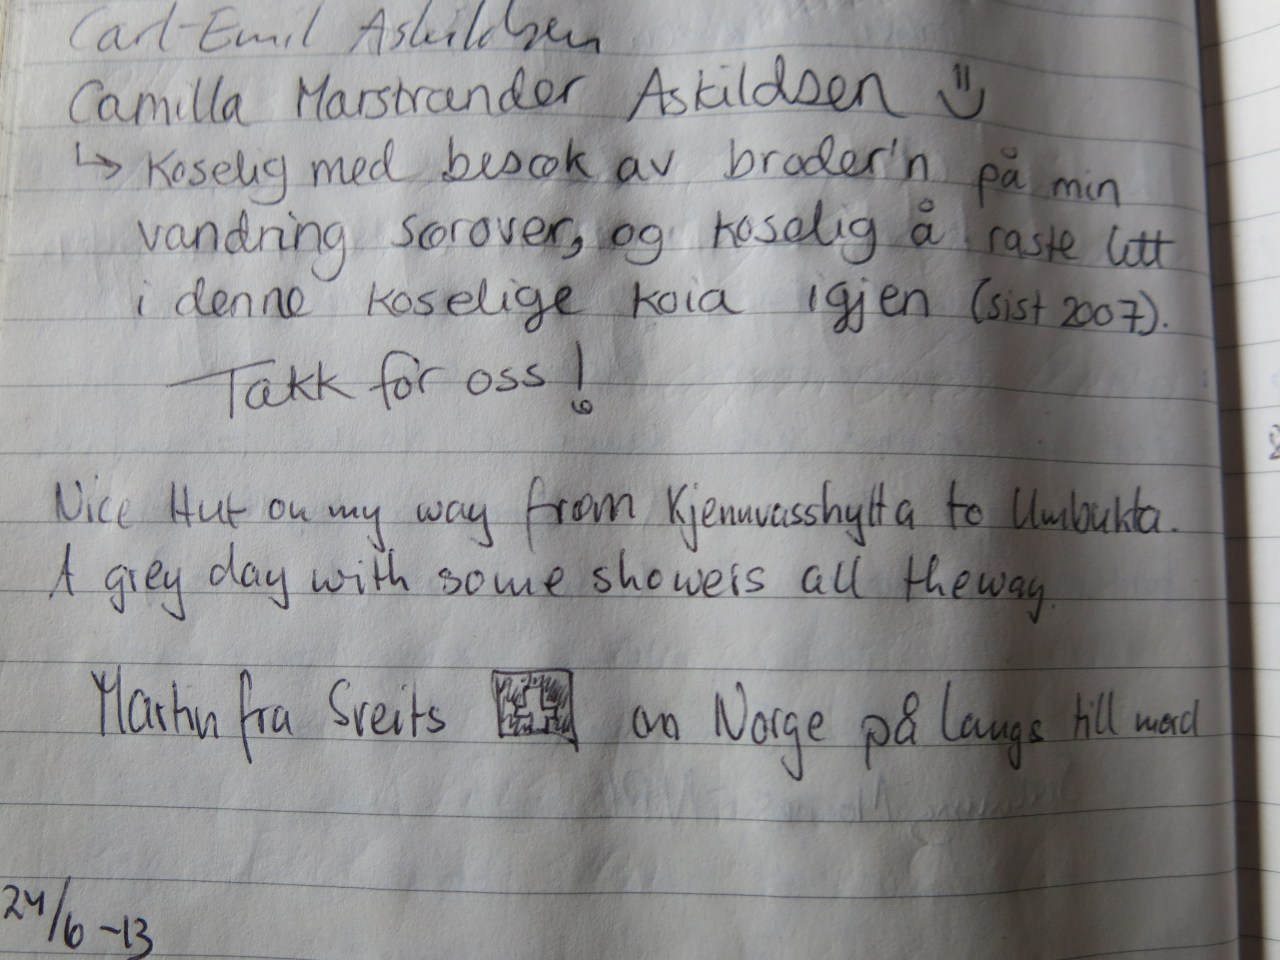 Carl-Emil Askildsen
Camilla Marstrander Askildsen =)
↳ Koselig med besøk av broder'n på min
vandring sørover, og koselig å raste litt
i denne koselige koia igjen (sist 2007).
Takk for oss!
Nice Hut on my way from Kjennvasshytta to Umbukta.
A grey day with some showers all the way.
Martin fra Sveits on Norge på langs till nord
24/6-13